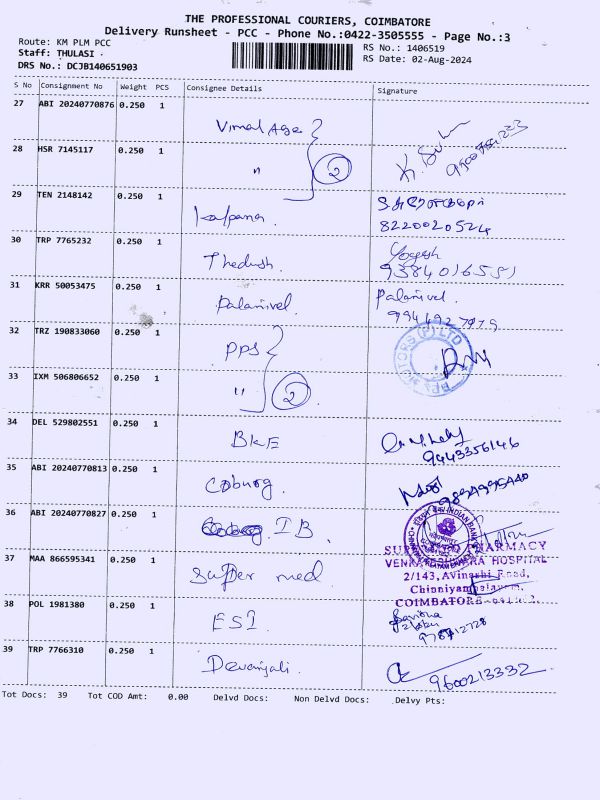 THE PROFESSIONAL COURIERS, COIMBATORE
Delivery Runsheet - PCC - Phone No.:0422-3505555 - Page No.:3
Route: KM PLM PCC
RS No.: 1406519
Staff: THULASI
RS Date: 02-Aug-2024
DRS No.: DCJB140651903
S No Consignment No Weight PCS Consignee Details Signature
27 ABI 20240770876 0.250 1
28 HSR 7145117 0.250 1 " 2
29 TEN 2148142 0.250 1 Kalpana
8220020524
30 TRP 7765232 0.250 1 Thedush. Yogesh
9384016551
31 KRR 50053475 0.250 1 Palanivel. Palanivel.
32 TRZ 190833060 0.250 1 PPS
MOTORS (P) LTD
33 IXM 506806652 0.250 1 " 2
34 DEL 529802551 0.250 1 BKE
9443356146
35 ABI 20240770813 0.250 1 Coburg.
36 ABI 20240770827 0.250 1 IB.
INDIAN BANK
PHARMACY
37 MAA 866595341 0.250 1 Supper med
HOSPITAL
2/143, Avinashi Road,
Chinniyampalayam,
COIMBATORE
38 POL 1981380 0.250 1 ESI.
39 TRP 7766310 0.250 1 Devanjali. 9600213332
Tot Docs: 39 Tot COD Amt: 0.00 Delvd Docs: Non Delvd Docs: Delvy Pts: